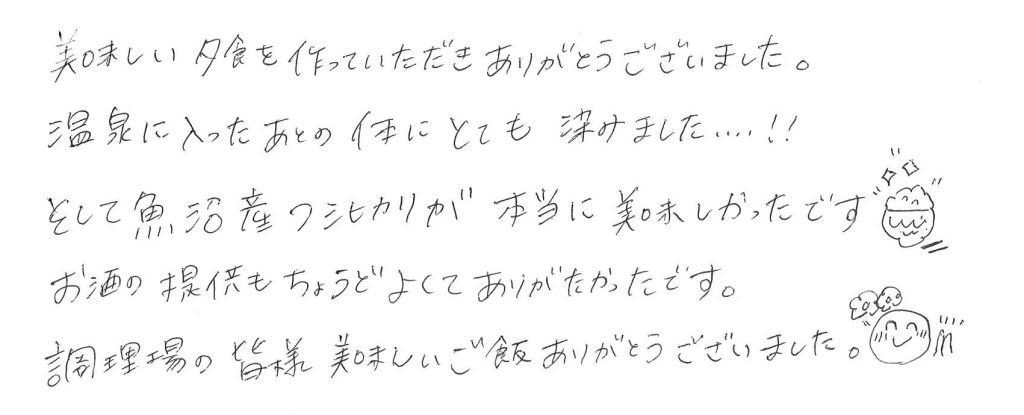 美味しい夕食を作っていただきありがとうございました。
温泉に入ったあとの体にとても染みました....!!
そして魚沼産コシヒカリが本当に美味しかったです
お酒の提供もちょうどよくてありがたかったです。
調理場の皆様美味しいご飯ありがとうございました。